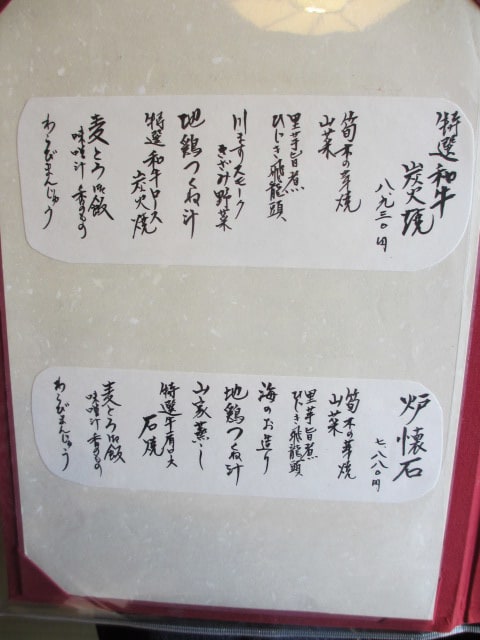 特選和牛
炭火焼
八、九三〇円
筍木の芽焼
山菜
里芋旨煮
ひじき飛龍頭
川モリスモーク
きざみ野菜
地鶏つくね汁
特選和牛ロース
炭火焼
麦とろ御飯
味噌汁 香のもの
わらびまんじゅう
炉懐石
七、八八〇円
筍木の芽焼
山菜
里芋旨煮
ひじき飛龍頭
海のお造り
地鶏つくね汁
山家蒸し
特選牛肩ロース
石焼
麦とろ御飯
味噌汁 香のもの
わらびまんじゅう